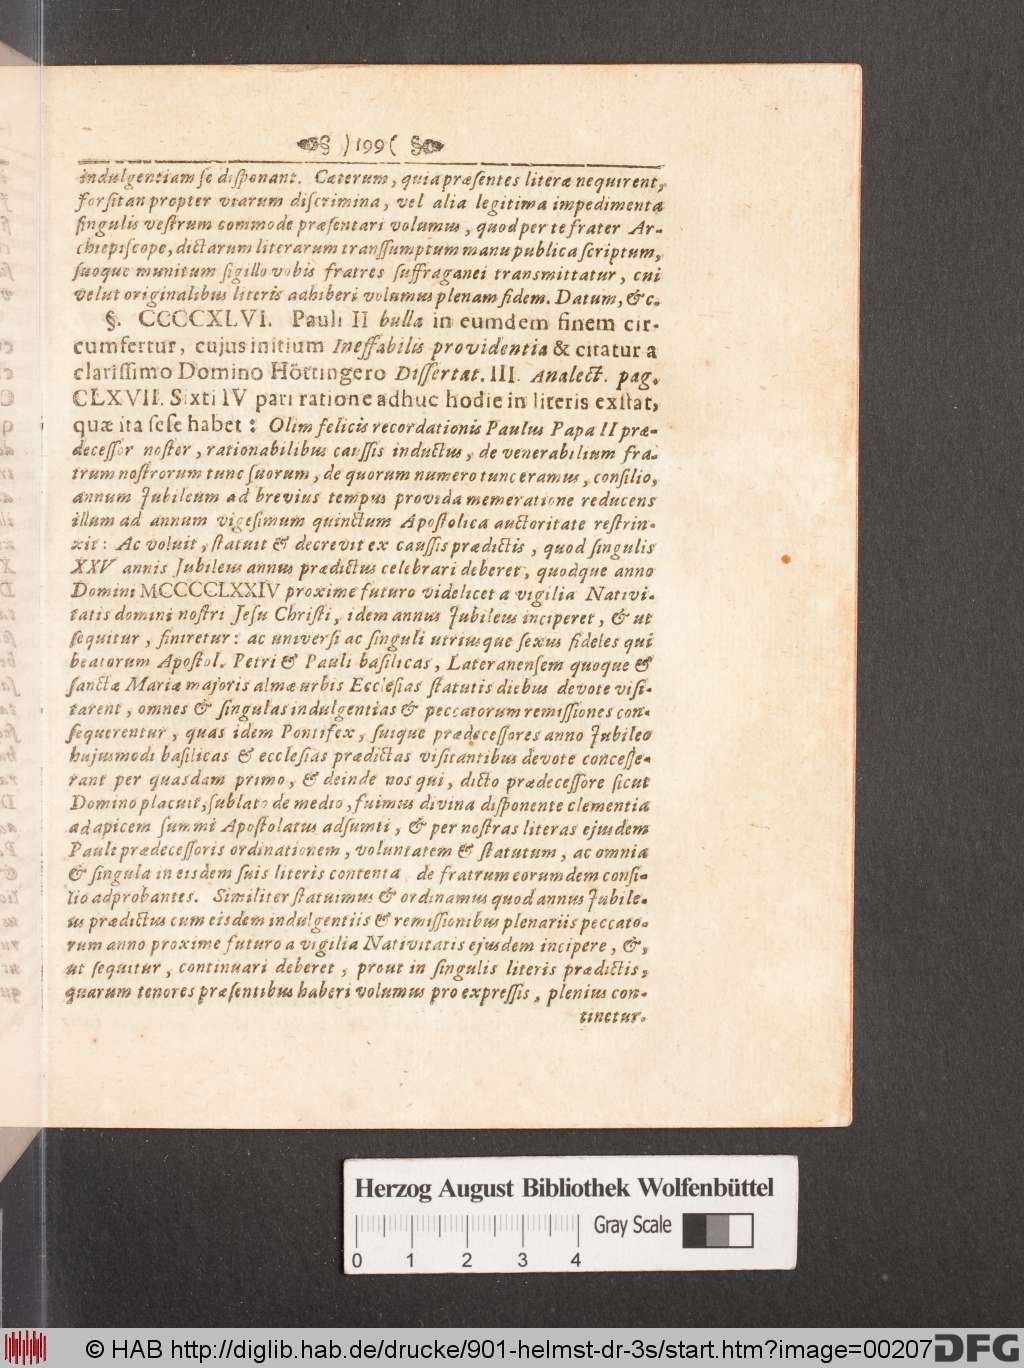 § )199( §
indulgentiam se disponant. Cæterum, quia præsentes literæ nequirent,
forsitan propter viarum discrimina, vel alia legitima impedimenta
singulis vestrum commode præsentari volumus, quod per te frater Ar-
chiepiscope, dictarum literarum transsumptum manu publica scriptum,
suoque munitum sigillo vobis fratres suffraganei transmittatur, cui
velut originalibus literis adhiberi volumus plenam fidem. Datum, &c.
§. CCCCXLVI. Pauli II bulla in eumdem finem cir-
cumfertur, cujus initium Ineffabilis providentia & citatur a
clarissimo Domino Höttingero Dissertat. III. Analect. pag.
CLXVII. Sixti IV pari ratione adhuc hodie in literis exstat,
quæ ita sese habet: Olim felicis recordationis Paulus Papa II præ-
decessor noster, rationabilibus caussis inductus, de venerabilium fra-
trum nostrorum tunc suorum, de quorum numero tunc eramus, consilio,
annum Jubileum ad brevius tempus provida memeratione reducens
illum ad annum vigesimum quinctum Apostolica auctoritate restrin-
xit: Ac voluit, statuit & decrevit ex caussis prædictis, quod singulis
XXV annis Jubileus annus prædictus celebrari deberet, quodque anno
Domini MCCCCLXXIV proxime futuro videlicet a vigilia Nativi-
tatis domini nostri Jesu Christi, idem annus Jubileus inciperet, & ut
sequitur, finiretur: ac universi ac singuli utriusque sexus fideles qui
beatorum Apostol. Petri & Pauli basilicas, Lateranensem quoque &
sanctæ Mariæ majoris almæ urbis Ecclesias statutis diebus devote visi-
tarent, omnes & singulas indulgentias & peccatorum remissiones con-
sequerentur, quas idem Pontifex, suique prædecessores anno Jubileo
hujusmodi basilicas & ecclesias prædictas visitantibus devote concesse-
rant per quasdam primo, & deinde nos qui, dicto prædecessore sicut
Domino placuit, sublato de medio, fuimus divina disponente clementia
ad apicem summi Apostolatus adsumti, & per nostras literas ejusdem
Pauli prædecessoris ordinationem, voluntatem & statutum, ac omnia
& singula in eisdem suis literis contenta de fratrum eorumdem consi-
lio adprobantes. Similiter statuimus & ordinamus quod annus Jubile-
us prædictus cum eisdem indulgentiis & remissionibus plenariis peccato-
rum anno proxime futuro a vigilia Nativitatis ejusdem incipere, &,
ut sequitur, continuari deberet, prout in singulis literis prædictis,
quarum tenores præsentibus haberi volumus pro expressis, plenius con-
tinetur.
Herzog August Bibliothek Wolfenbüttel
Gray Scale
0 1 2 3 4
© HAB http://diglib.hab.de/drucke/901-helmst-dr-3s/start.htm?image=00207
DFG